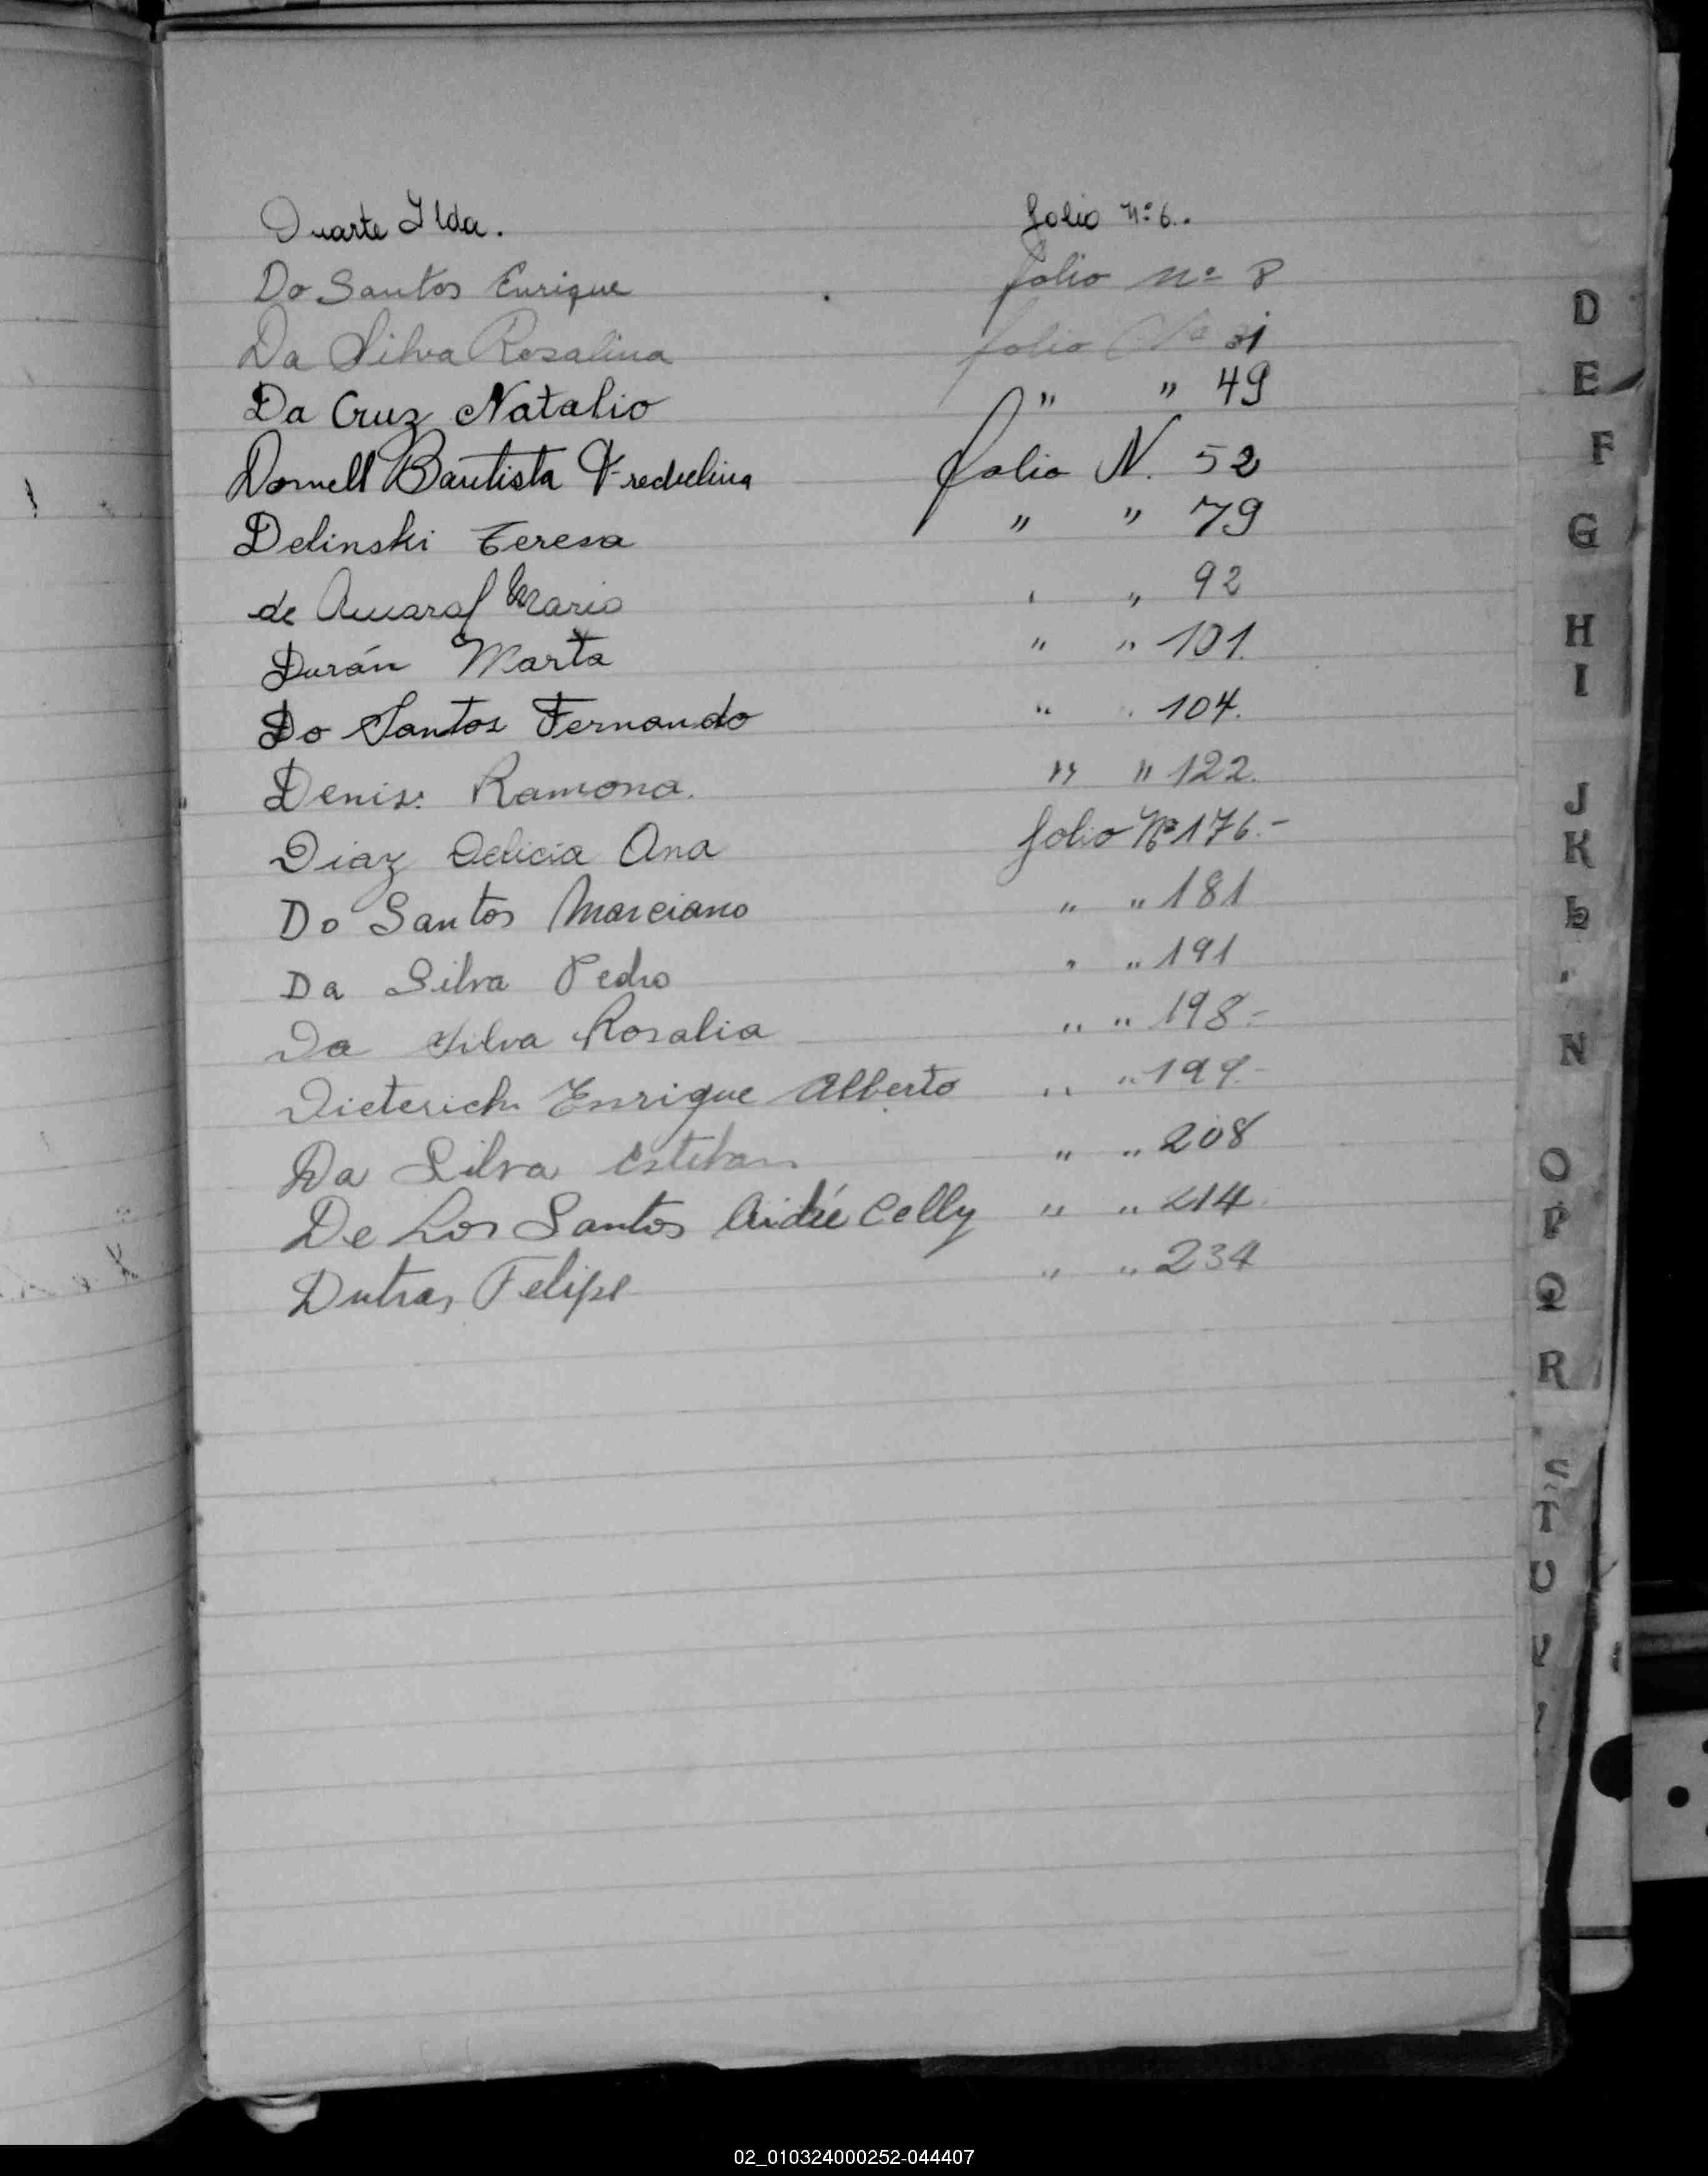 Duarte Ilda. folio Nº 6..
Do Santos Enrique folio nº 8
Da Silva Rosalina folio Nº 31
Da Cruz Natalio " " 49
Dornell Bautista folio N. 52
Delinski Teresa " " 79
de Amaral Mario " " 92
Durán Marta " " 101.
Do Santos Fernando " " 104.
Denis: Ramona. " " 122.
Diaz Delicia Ana folio Nº 176.-
Do Santos Marciano " " 181
Da Silva Pedro " " 191
Da Silva Rosalia " " 198.-
Dieterich Enrique Alberto " " 199.-
Da Silva Esteban " " 208
De Los Santos Aidée Celly " " 214
Dutra, Felipe " " 234
D
E
F
G
H
I
J
K
L
N
O
P
Q
R
S
T
U
V
02_010324000252-044407